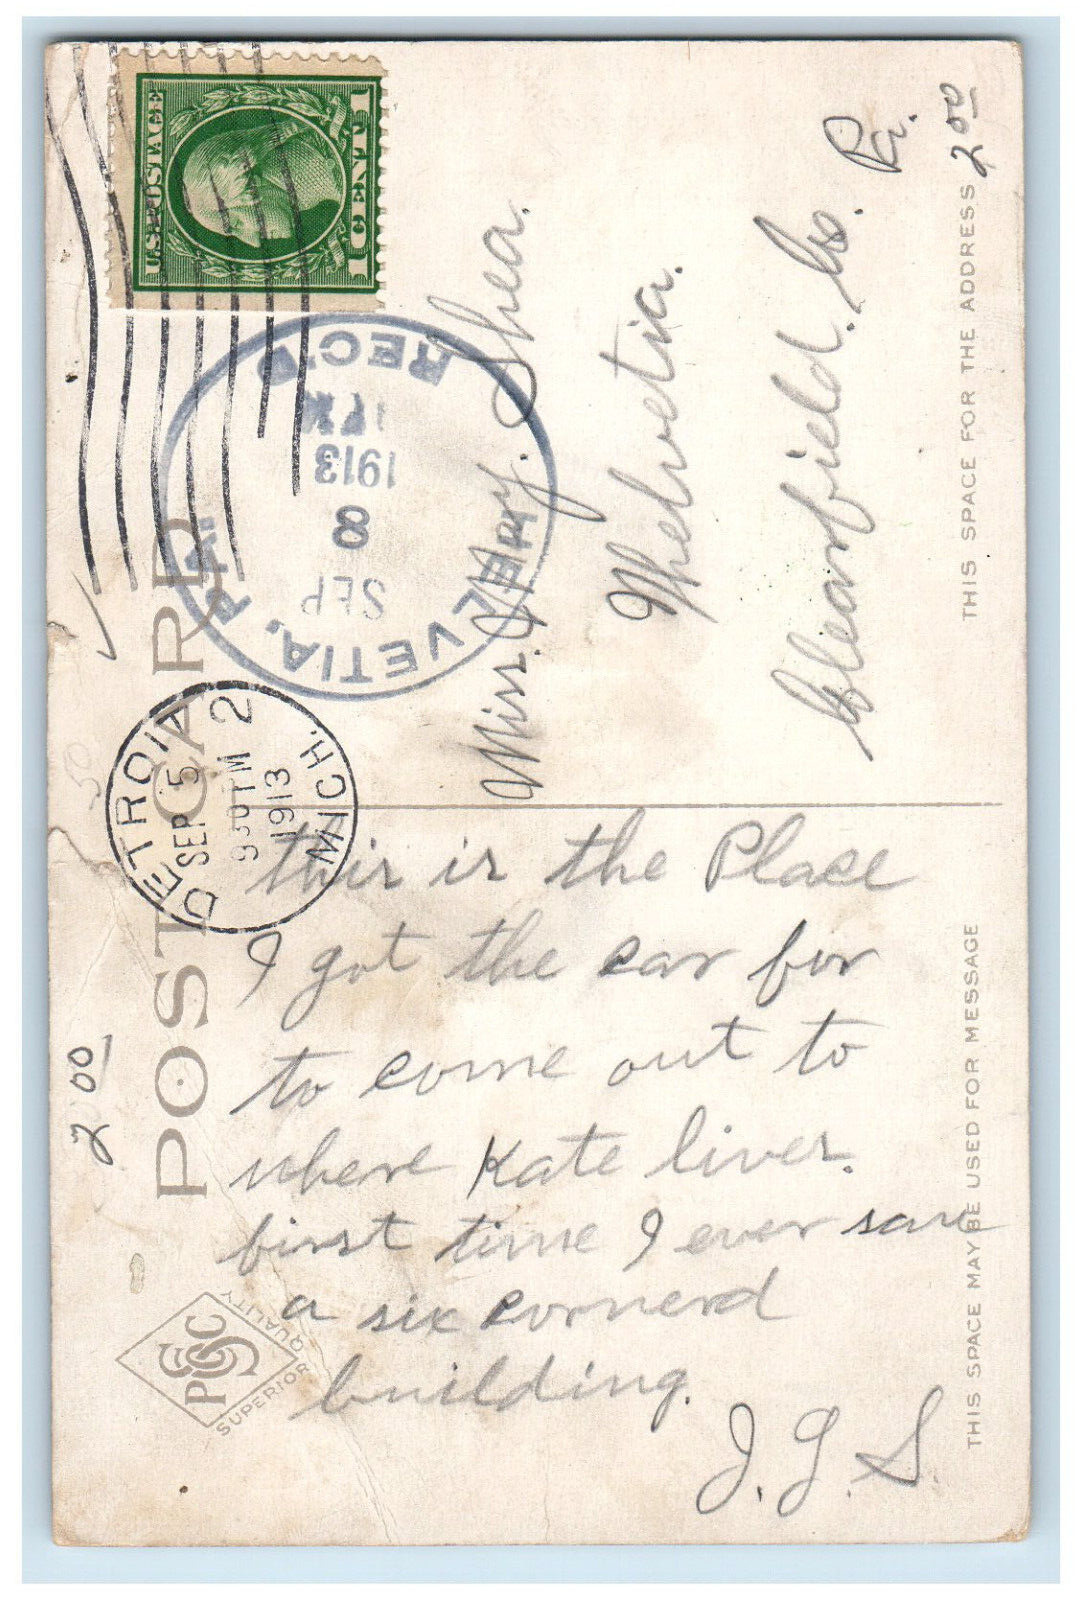 POST CARD
this is the Place
I got the car for
to come out to
where Kate lives.
first time I ever saw
a six cornerd
building.
J. G. S.
Miss. May. Shea.
Whelvetia.
Clearfield. Co. Pa.
U.S. POSTAGE
1 ONE 1
DETROIT
SEP 5
930 PM 2
1913
MICH.
HELVETIA, PA.
SEP
8
1913
REC'D
2 00
2 00
50
PSGC
SUPERIOR QUALITY
THIS SPACE MAY BE USED FOR MESSAGE
THIS SPACE FOR THE ADDRESS